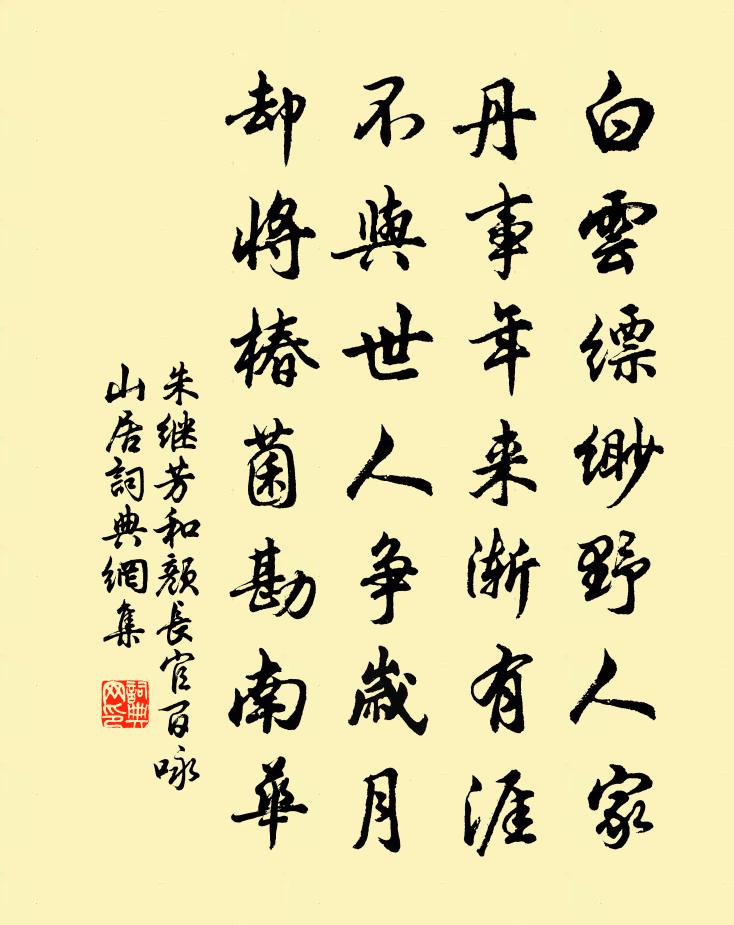 白雲縹緲野人家
丹事年来漸有涯
不與世人争歳月
却將椿菌勘南華
朱继芳和颜長官百咏
山居詞典網集
詞典網印